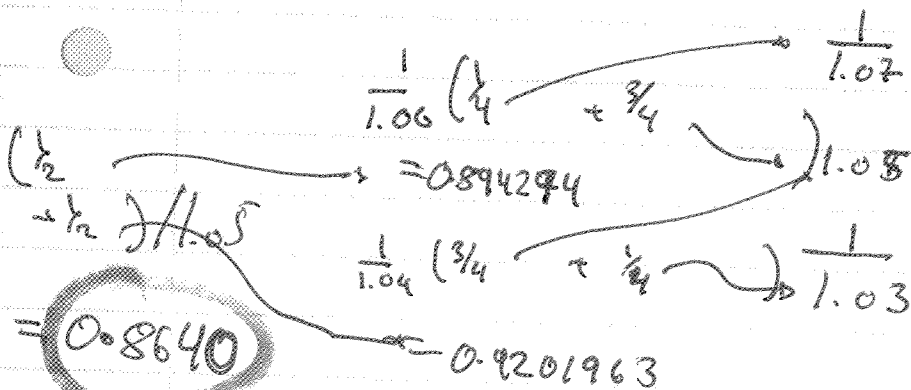 1/1.06 (1/4 + 3/4 ) 1/1.07
(1/2 = 0.894294 1.05
+ 1/2 )/1.05
1/1.04 (3/4 + 1/4 ) 1/1.03
= 0.8640
0.9201963